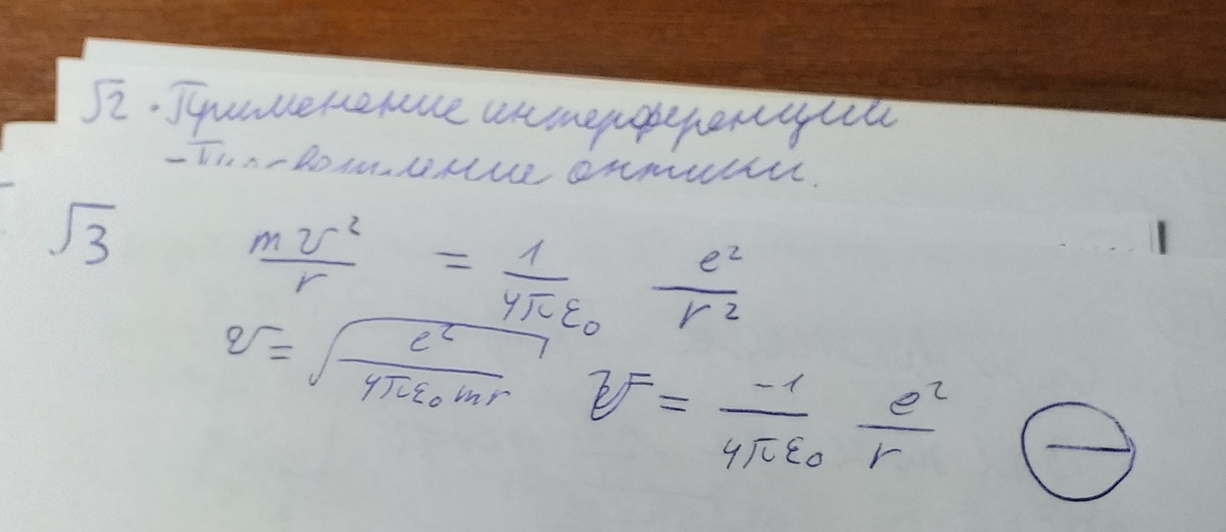 √2. Применение интерференции
оптики.
√3 mv²/r = 1/4πε₀ e²/r²
v = √(e²/4πε₀mr) = -1/4πε₀ e²/r